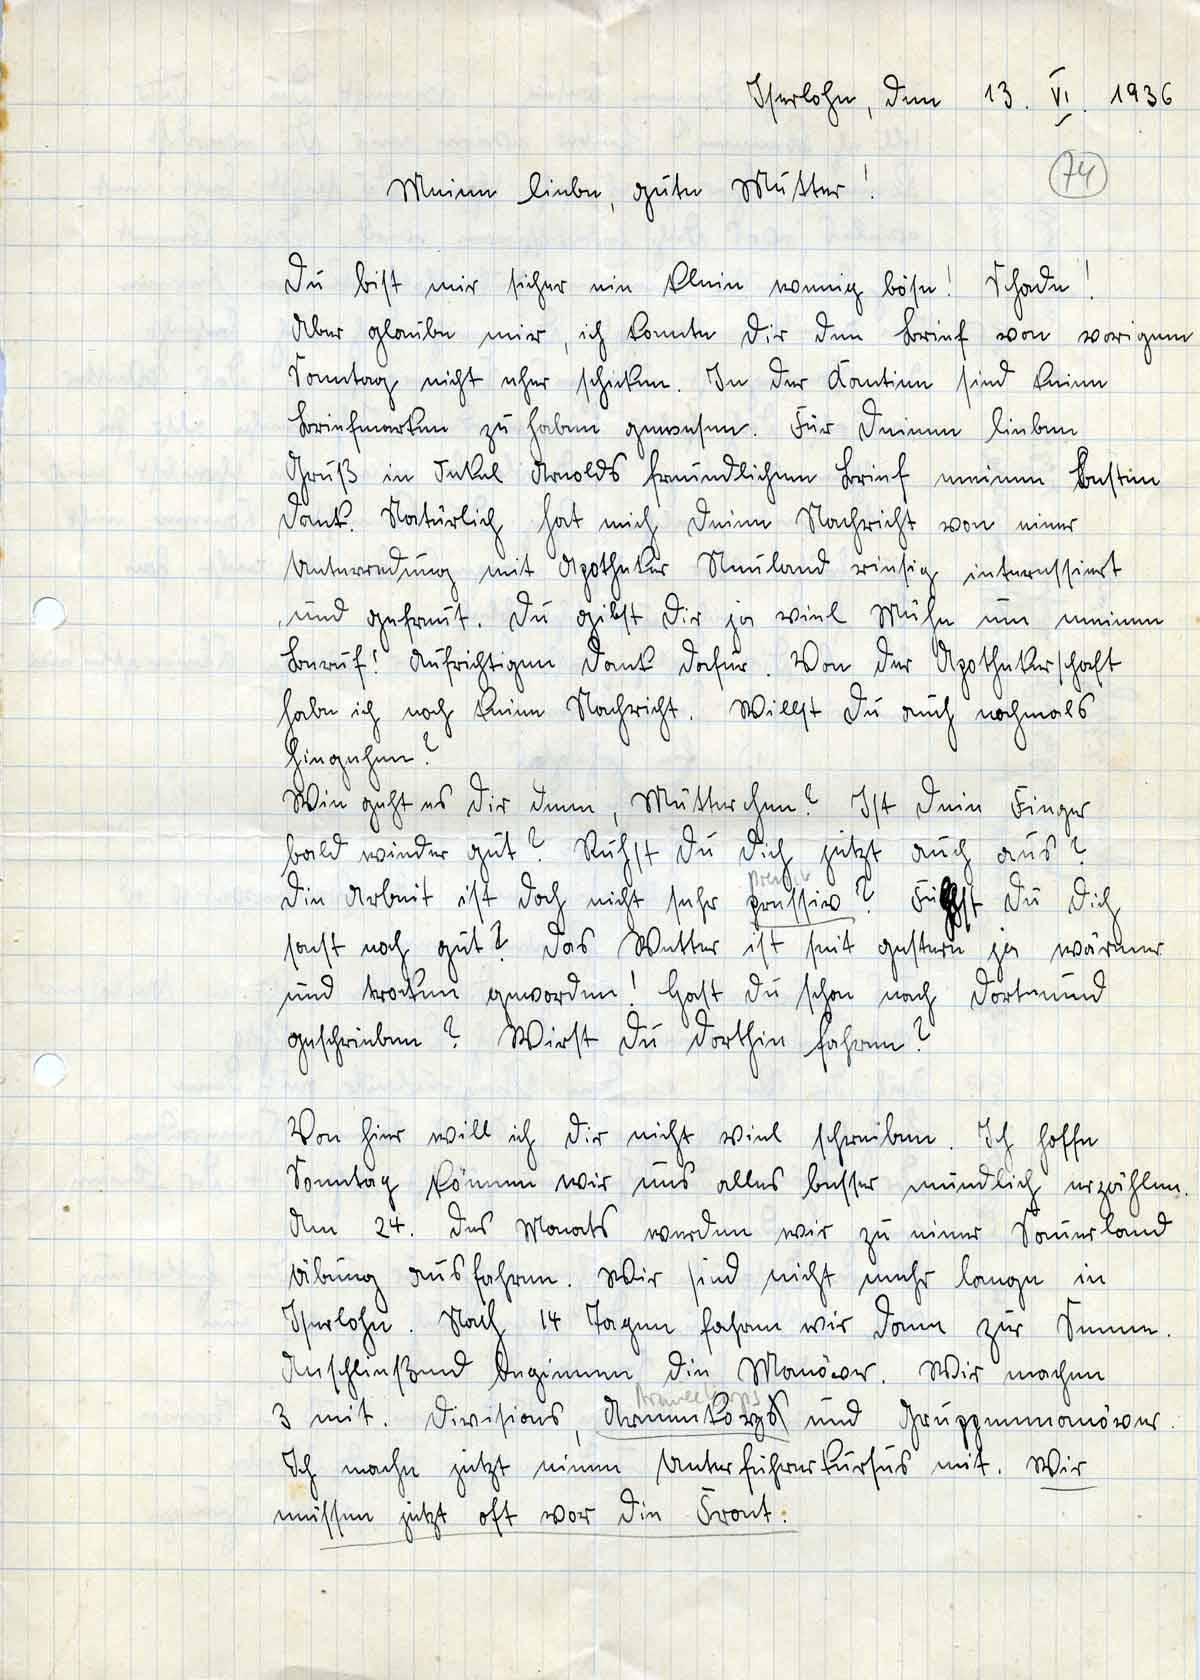 Iserlohn, den 13. VI. 1936
74
Meine liebe, gute Mutter!
Du bist mir sicher ein klein wenig böse! Schade!
Aber glaube mir, ich konnte Dir den Brief von vorigem
Sonntag nicht eher schicken. In der Kantine sind keine
Briefmarken zu haben gewesen. Für Deinen lieben
Gruß in Onkel Arnolds freundlichem Brief meinen besten
Dank. Natürlich hat mich Deine Nachricht von einer
Unterredung mit Apotheker Neuland riesig interessiert
und gefreut. Du gibst Dir ja viel Mühe um meinen
Beruf! Aufrichtigen Dank dafür. Von der Apothekerschaft
habe ich noch keine Nachricht. Willst Du auch nochmals
hingehen?
Wie geht es Dir denn, Mütterchen? Ist Dein Finger
bald wieder gut? Ruhst Du Dich jetzt auch aus?
Die Arbeit ist doch nicht sehr pressiv? Fühlst Du Dich
sonst noch gut? Das Wetter ist seit gestern ja wärmer
und trocken geworden! Hast Du schon nach Dortmund
geschrieben? Wirst Du dorthin fahren?
Von hier will ich Dir nicht viel schreiben. Ich hoffe
Sonntag können wir uns alles besser mündlich erzählen.
Am 24. des Monats werden wir zu einer Sauerland
Übung ausfahren. Wir sind nicht mehr lange in
Iserlohn. Nach 14 Tagen fahren wir dann zur Senne.
Anschließend beginnen die Manöver. Wir machen
Armeekorps
3 mit. Divisions, Armeekorps und Gruppenmanöver.
Ich mache jetzt einen Unterführerkursus mit. Wir
müssen jetzt oft vor die Front.